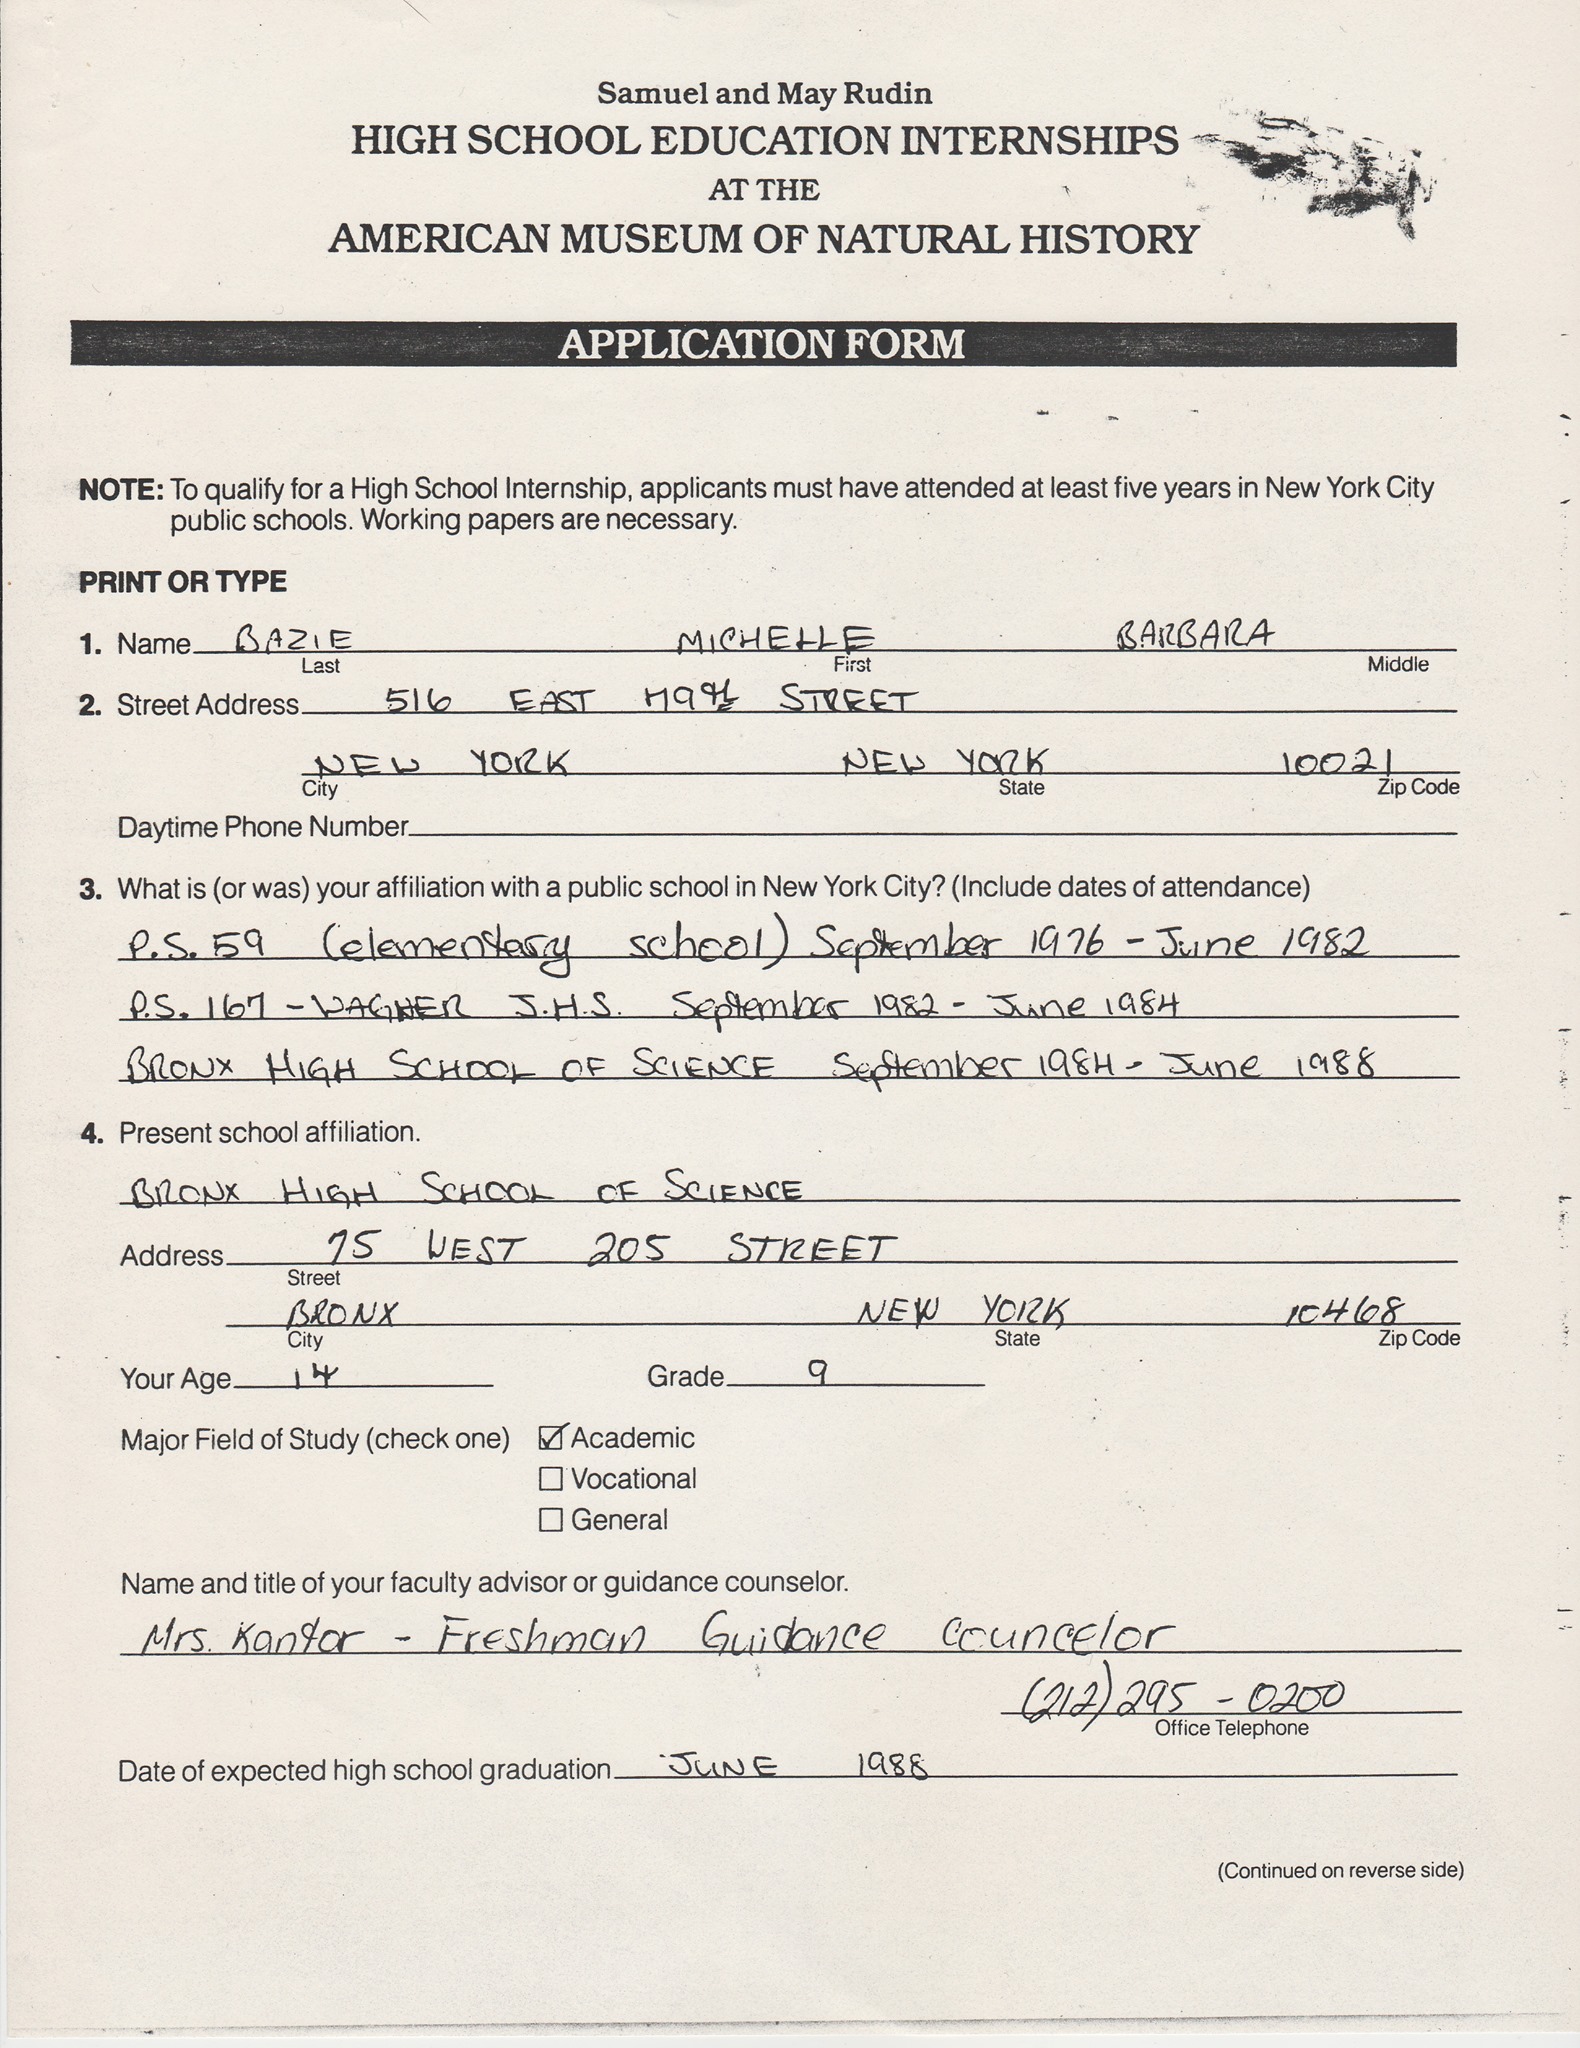 Samuel and May Rudin
HIGH SCHOOL EDUCATION INTERNSHIPS
AT THE
AMERICAN MUSEUM OF NATURAL HISTORY
APPLICATION FORM
NOTE: To qualify for a High School Internship, applicants must have attended at least five years in New York City
public schools. Working papers are necessary.
PRINT OR TYPE
1. Name BAZIE MICHELLE BARBARA
Last First Middle
2. Street Address 516 EAST 79th STREET
NEW YORK NEW YORK 10021
City State Zip Code
Daytime Phone Number
3. What is (or was) your affiliation with a public school in New York City? (Include dates of attendance)
P.S. 59 (elementary school) September 1976 - June 1982
P.S. 167 - WAGNER J.H.S. September 1982 - June 1984
BRONX HIGH SCHOOL OF SCIENCE September 1984 - June 1988
4. Present school affiliation.
BRONX HIGH SCHOOL OF SCIENCE
Address 75 WEST 205 STREET
Street
BRONX NEW YORK 10468
City State Zip Code
Your Age 14 Grade 9
Major Field of Study (check one) ☑ Academic
☐ Vocational
☐ General
Name and title of your faculty advisor or guidance counselor.
Mrs. Kantor - Freshman Guidance Councelor
(212) 295 - 0200
Office Telephone
Date of expected high school graduation JUNE 1988
(Continued on reverse side)